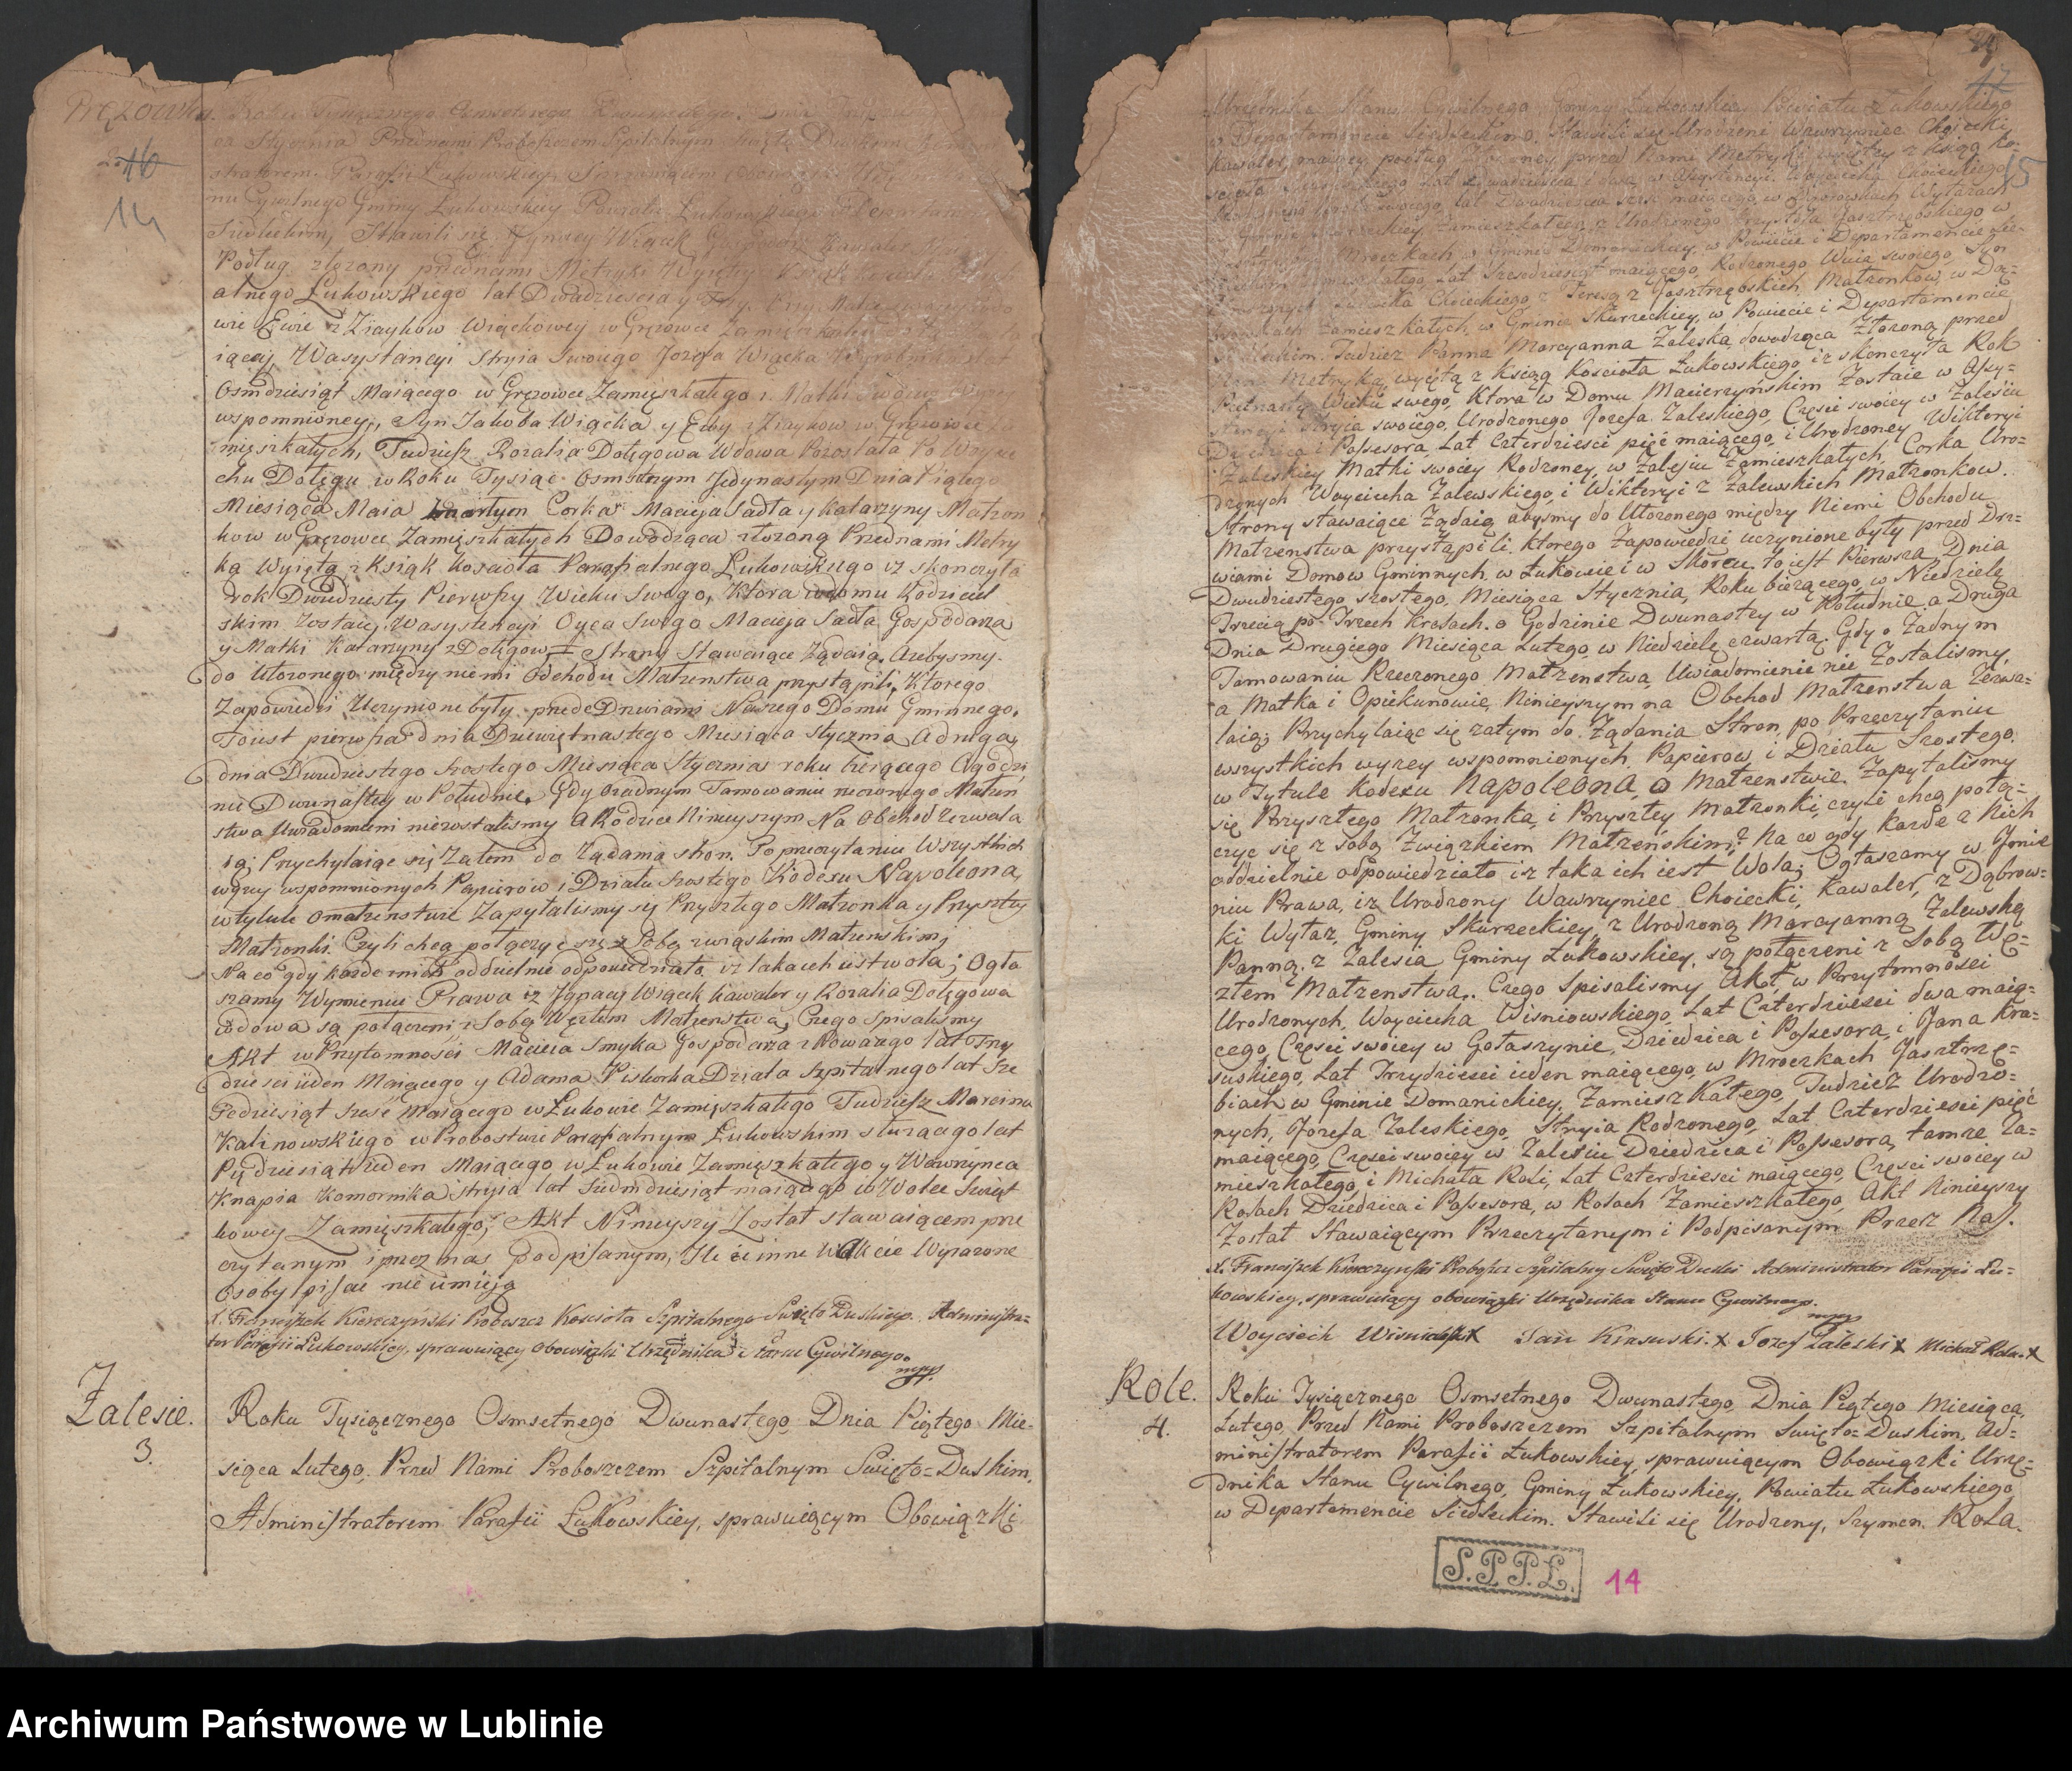 Gręzowka. Roku Tysiącznego Osmsetnego Dwunastego. Dnia
ca Stycznia Przednami Proboszczem Szpitalnym Święto Duskim Admini
stratorem Parafii Łukowskiey Sprawuiącym Obowiązki
16
14
nu Cywilnego Gminy Łukowskiey Powiatu Łukowskiego w Departamen
Siedleckim, Stawili się Jgnacy Wiącek Gospodarz Kawaler
Podług złożony przednami Metryki Wyiętey z Ksiąk Kościoła Parafi
alnego Łukowskiego lat Dwadziescia y Trzy
wie Ewie z Ziaykow Wiąckowey w Gręzowce Zamięszkałey
iącey, Wasystencyi Stryia Swoiego Jozefa Wiącka Wyrobnika
Osmdziesiąt Maiącego w Gręzowce Zamięszkałego i Matki Swoiey
wspomnioney, Syn Jakoba Wiącka y Ewy z Ziaykow w Gręzowce Za
mięszkałych, Tudziesz Rozalia Dołęgowa Wdowa Pozostała Po Woycie
chu Dołęgu w Roku Tysiąc Osmsetnym Jedynastym Dnia Piątego
Miesiąca Maia zmarłym Corka Macieja Sadła y Katarzyny Małżon
kow w Gręzowce Zamięszkałych Dowodząca złożoną Przednami Metry
ką Wyiętą z Ksiąk Kościoła Parafialnego Łukowskiego iż skonczyła
rok Dwudziesty Pierwszy Wieku Swego, Ktora w domu Rodziciel
skim Zostaie, Wasystencyi Oyca Swego Macieja Sadła Gospodarza
y Matki Katarzyny z Dołęgow Strony Stawaiące Żądaią Azebysmy
do Ułożonego między niemi Obchodu Małżenstwa przystąpili, Ktorego
Zapowiedzi Uczynione były przede Drzwiami Naszego Domu Gminnego,
Toiest pierwsza dnia Dziewiętnastego Miesiąca Stycznia a druga
dnia Dwudziestego Szostego Miesiąca Stycznia roku bieżącego o godzi
nie Dwunastey w Południe, Gdy ożadnym Tamowaniu rzeczonego Małżen
stwa Uwiadomieni niezostalismy a Rodzice Ninieyszym Na Obchod zezwala
ią; Przychylaiąc się Zatem do Żądania stron, Po przeczytaniu Wszystkich
wyzey wspomnionych Papierow i Działu Szostego Kodexu Napoleona,
w tytule o małżenstwie Zapytalismy się Przyszłego Małżonka y Przyszłey
Małżonki. Czyli chcą połączyć się z Sobą zwiąskiem Małżenskim;
Na co gdy każde z nich oddzielnie odpowiedziało iż taka ich iest wola; Ogła
szamy Wymieniu Prawa iż Jgnacy Wiącek kawaler y Rozalia Dołęgowa
wdowa są połączeni z Sobą Węzłem Małżenstwa, Czego spisalismy
Akt w Przytomności Macieia Smyka Gospodarza z Nowarego lat Trzy
dziesci ieden Maiącego y Adama Piskorka Dziada Szpitalnego lat Sze
śćdziesiąt szesc Maiącego w Łukowie Zamięszkałego Tudziesz Marcina
Kalinowskiego w Probostwie Parafialnym Łukowskim służącego lat
Pędziesiąt ieden Maiącego w Łukowie Zamięszkałego y Wawrzynca
Knapia Komornika stryia lat Siedmdziesiąt maiącego w Wolce Świąt
kowey Zamięszkałego, Akt Ninieyszy Został stawaiącem prze
czytanym i przez nas podpisanym, Ile że inne w akcie Wyrażone
Osoby pisać nie umieją
X. Franciszek Kiereczyński Proboszcz Kościoła Szpitalnego Święto Duskiego Administra-
tor Parafii Łukowskiey, sprawuiący obowiązki Urzędnika Stanu Cywilnego.
mpp.
Zalesie.
3.
Roku Tysiącznego Osmsetnego Dwunastego Dnia Piątego Mie-
siąca Lutego, Przed Nami Proboszczem Szpitalnym Święto=Duskim,
Administratorem Parafii Łukowskiey, sprawuiącym Obowiązki
17
15
Urzędnika Stanu Cywilnego Gminy Łukowskiey Powiatu Łukowskiego
w Departamencie Siedleckim. Stawili się Urodzeni Wawrzyniec Choiecki
Kawaler, maiący podług złożoney przed Nami Metryki wyiętey z Ksiąg Ko-
ścioła Lat Dwadzieścia i dwa, w Assystencyi Woyciecha Choieckiego
swoiego, lat Dwadzieścia szesc maiącego, w Dąbrowkach Wyłazach
w Gminie Skurzeckiey Zamieszkałego, z Urodzonego Krzysztofa Jasztrzębskiego w
Mroczkach, w Gminie Domanickiey, w Powiecie i Departamencie Sie-
dleckim Zamieszkałego, Lat Sześcdziesiąt maiącego, Rodzonego Wuia swoiego, Syn
Choieckiego, z Teresą z Jasztrzębskich Małżonkow, w Dąb-
browkach Zamieszkałych, w Gminie Skurzeckiey, w Powiecie i Departamencie
Siedleckim. Tudziez Panna Maryanna Zaleska, dowodząca złożoną przed
Nami Metryką wyiętą z Ksiąg Kościoła Łukowskiego, iż skonczyła Rok
Piętnasty Wieku swego, Ktora w Domu Macierzyńskim Zostaie w Assy-
stencyi Stryia swoiego, Urodzonego Jozefa Zaleskiego, Części swoiey w Zalesiu
Dziedzica i Possesora, Lat Czterdziesci pięć maiącego, i Urodzoney Wiktoryi
Zaleskiey Matki swoiey Rodzoney, w Zalesiu Zamieszkałych, Corka Uro-
dzonych Woyciecha Zalewskiego, i Wiktoryi z Zalewskich Małżonkow.
Strony stawaiące Żądaią abyśmy do Ułożonego między Niemi Obchodu
Małżenstwa przystąpili, ktorego Zapowiedzi uczynione były przed Drz-
wiami Domow Gminnych, w Łukowie i w Skorcu, to iest Pierwsza, Dnia
Dwudziestego szostego, Miesiąca Stycznia, Roku bieżącego, w Niedzielę
Trzecią po Trzech Krolach. o Godzinie Dwunastey w Południe, a Druga
Dnia Drugiego Miesiąca Lutego, w Niedzielę czwartą. Gdy o Żadnym
Tamowaniu Rzeczonego Małżenstwa, Uwiadomienie nie Zostalismy,
a Matka i Opiekunowie, Ninieyszym na Obchod Małżenstwa Zezwa-
laią; Przychylaiąc się zatym do Żądania Stron, po Przeczytaniu
wszystkich wyzey wspomnionych Papierow, i Działu Szostego
w Tytule Kodexu Napoleona, o Małżenstwie. Zapytalismy
się Przyszłego Małżonka, i Przyszłey Małżonki, czyli chcą połą-
czyc się z sobą Związkiem Małżeńskim? Na co gdy każde z Nich
oddzielnie odpowiedziało iż taka ich iest Wola; Ogłaszamy w Jmie
niu Prawa, iż Urodzony Wawrzyniec Choiecki, Kawaler, z Dąbrow-
ki Wyłaz, Gminy Skurzeckiey, z Urodzoną Maryanną Zalewską
Panną, z Zalesia Gminy Łukowskiey, są połączeni z Sobą Wę-
złem Małżenstwa. Czego Spisalismy Akt, w Przytomności
Urodzonych, Woyciecha Wisniowskiego, Lat Czterdziesci dwa maią-
cego, Części swoiey w Gołaszynie, Dziedzica i Possesora, i Jana Kra-
suskiego, Lat Trzydziesci ieden maiącego, w Mroczkach Jasztrzę-
biach w Gminie Domanickiey, Zamieszkałego, Tudzież Urodzo-
nych, Jozefa Zaleskiego, Stryia Rodzonego, Lat Czterdziesci pięć
maiącego, Części swoiey w Zalesiu Dziedzica i Possesora, tamże Za-
mieszkałego, i Michała Roli, Lat Czterdziesci maiącego, Części swoiey w
Rolach Dziedzica i Possesora, w Rolach Zamieszkałego, Akt Ninieyszy
Został Stawaiącym Przeczytanym i Podpisanym Przez Nas.
X. Franciszek Kiereczyński Proboszcz Szpitalny Święto Duski Administrator Parafii Łu-
kowskiey, sprawuiący obowiązki Urzędnika Stanu Cywilnego.
mpp
Woyciech Wisniewski X Jan Krasuski. X Jozef Zaleski X Michał Rola. X
Role.
4.
Roku Tysiącznego Osmsetnego Dwunastego, Dnia Piątego Miesiąca
Lutego, Przed Nami Proboszczem Szpitalnym Święto=Duskim, Ad-
ministratorem Parafii Łukowskiey, sprawuiącym Obowiązki Urzę-
dnika Stanu Cywilnego, Gminy Łukowskiey, Powiatu Łukowskiego
w Departamencie Siedleckim. Stawili się Urodzony, Szymon Rola.
S.P.P.Ł.
14
Archiwum Państwowe w Lublinie